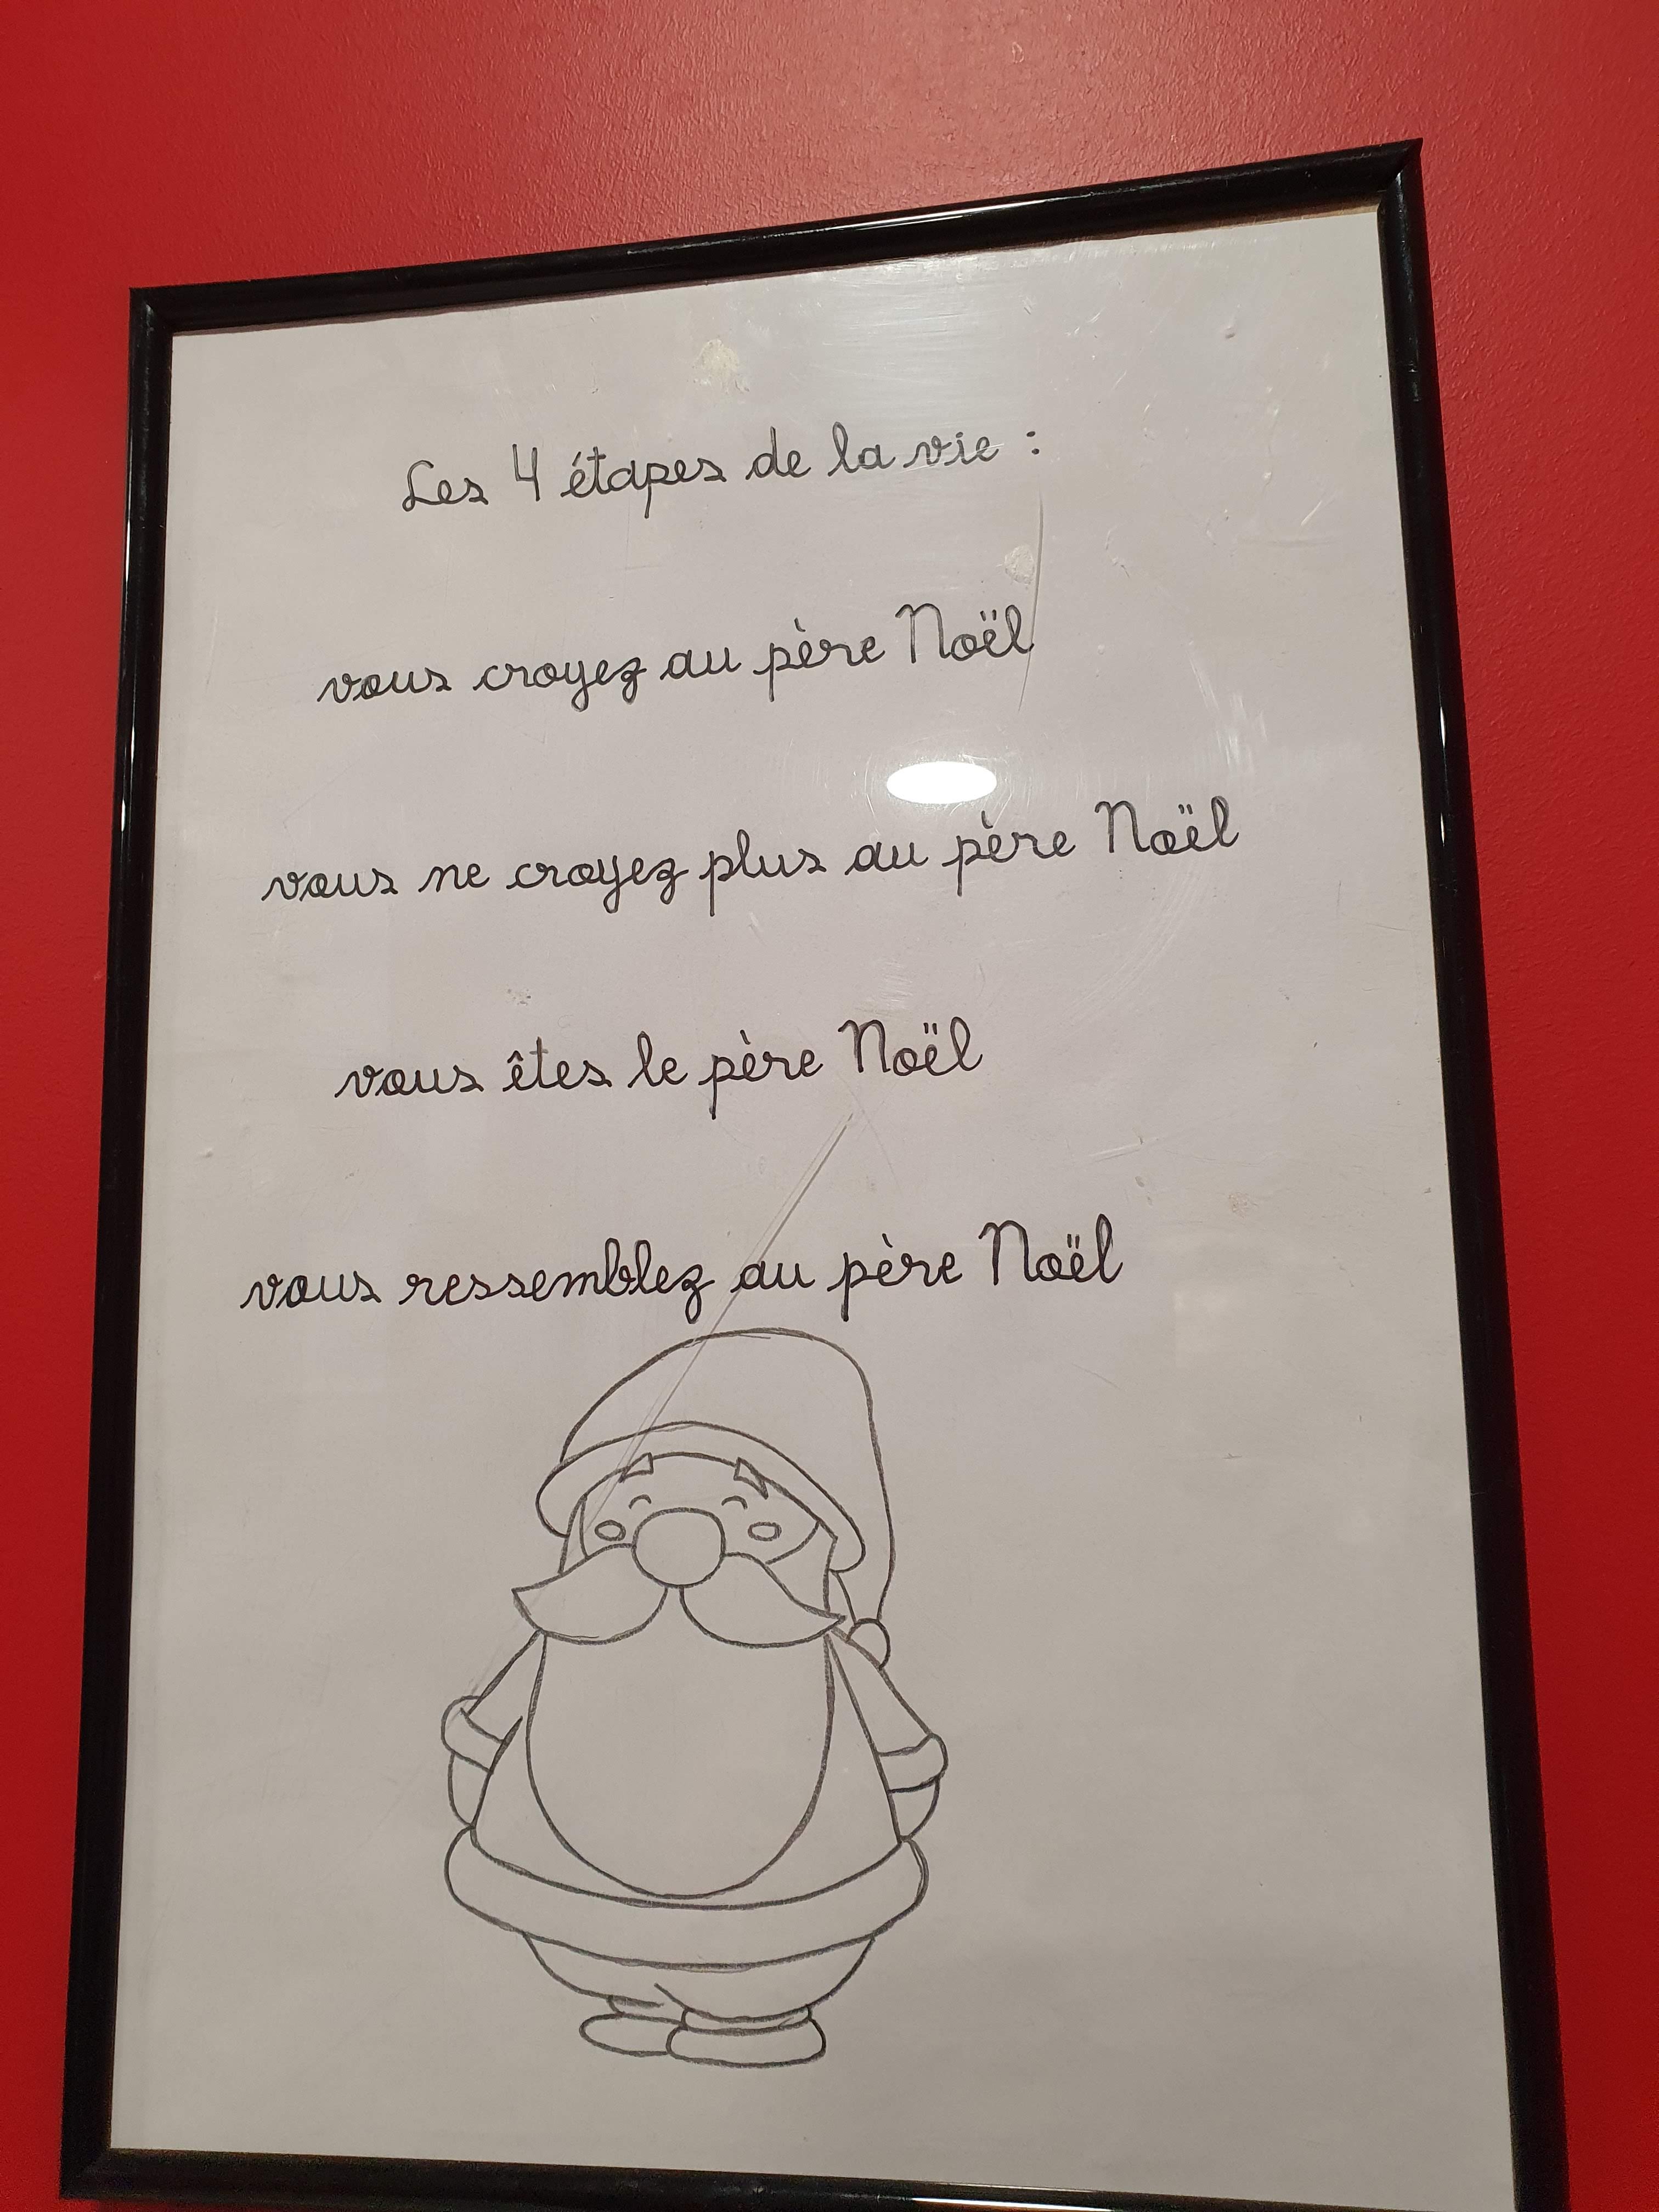 Les 4 étapes de la vie :
vous croyez au père Noël
vous ne croyez plus au père Noël
vous êtes le père Noël
vous ressemblez au père Noël